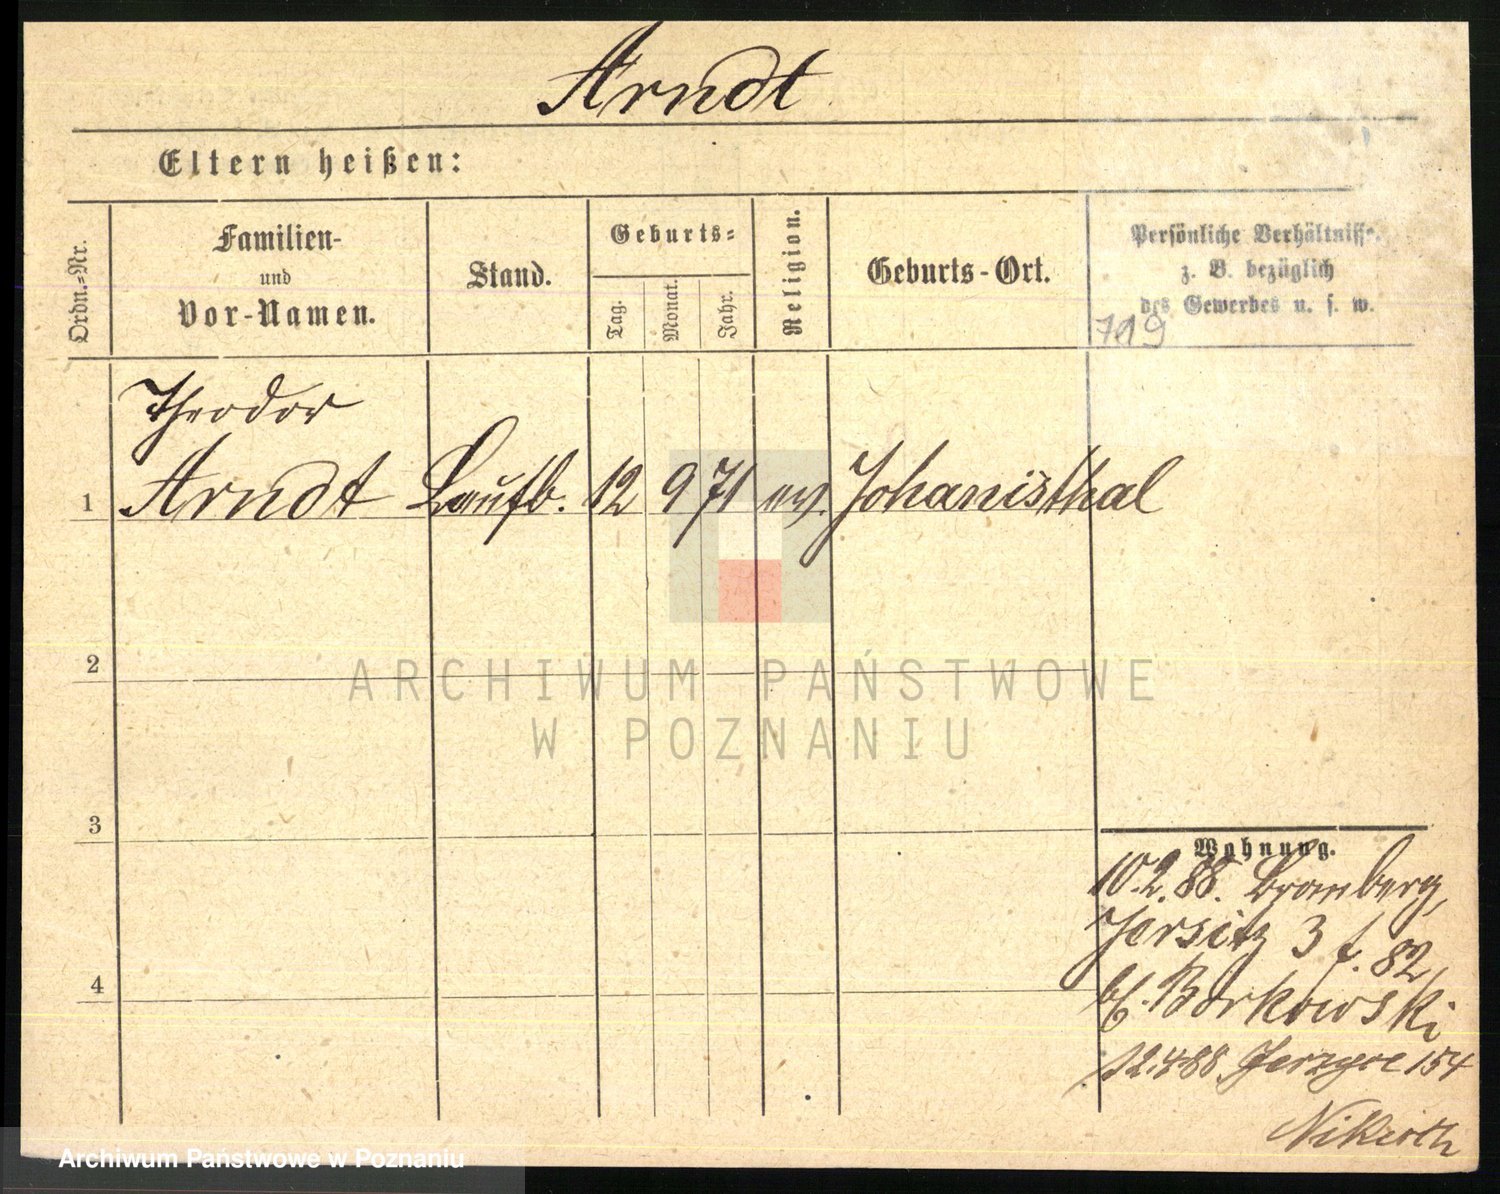 Arndt
Eltern heißen:
Ordn.-Nr.
Familien-
und
Vor-Namen.
Stand.
Geburts-
Tag.
Monat.
Jahr.
Religion.
Geburts-Ort.
Persönliche Verhältnisse
z. B. bezüglich
des Gewerbes u. s. w.
719
Theodor
1 Arndt Laufb. 12 9 71 ev. Johanisthal
2
3
4
Wohnung.
10.2.88. Bromberg,
Jersitz 3 f. 82,
bf. Borkowski
12.4.88 154
ARCHIWUM PAŃSTWOWE
W POZNANIU
Archiwum Państwowe w Poznaniu